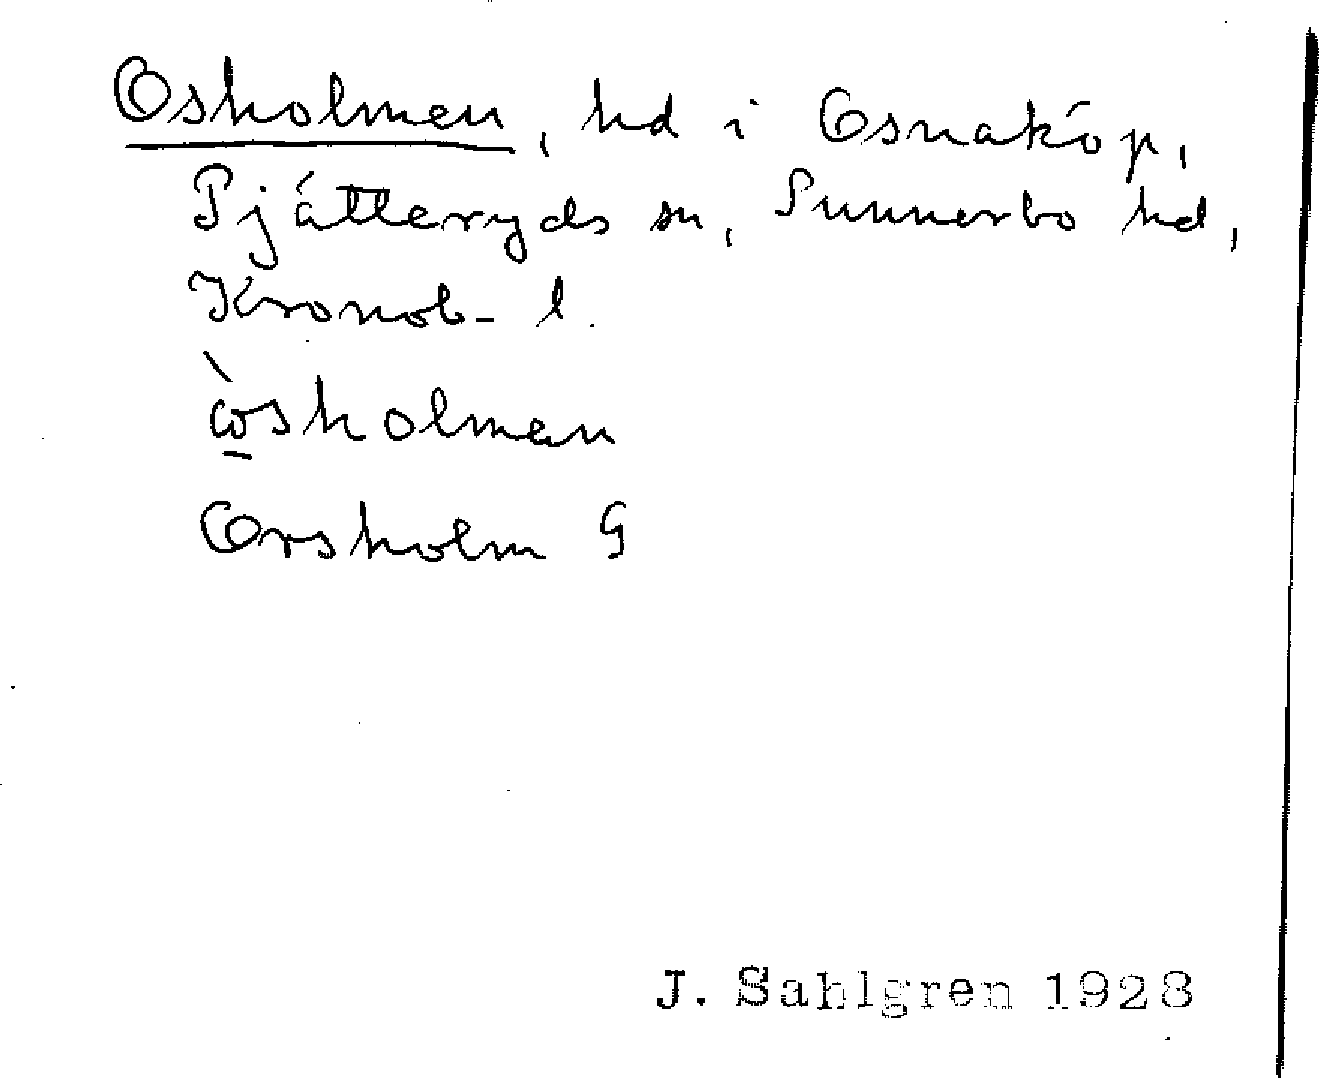 Osholmen, hd i Osnaköp,
Pjätteryds sn, Sunnerbo hd,
Kronob- l.
ò̱sholman
Orsholm G
J. Sahlgren 1928